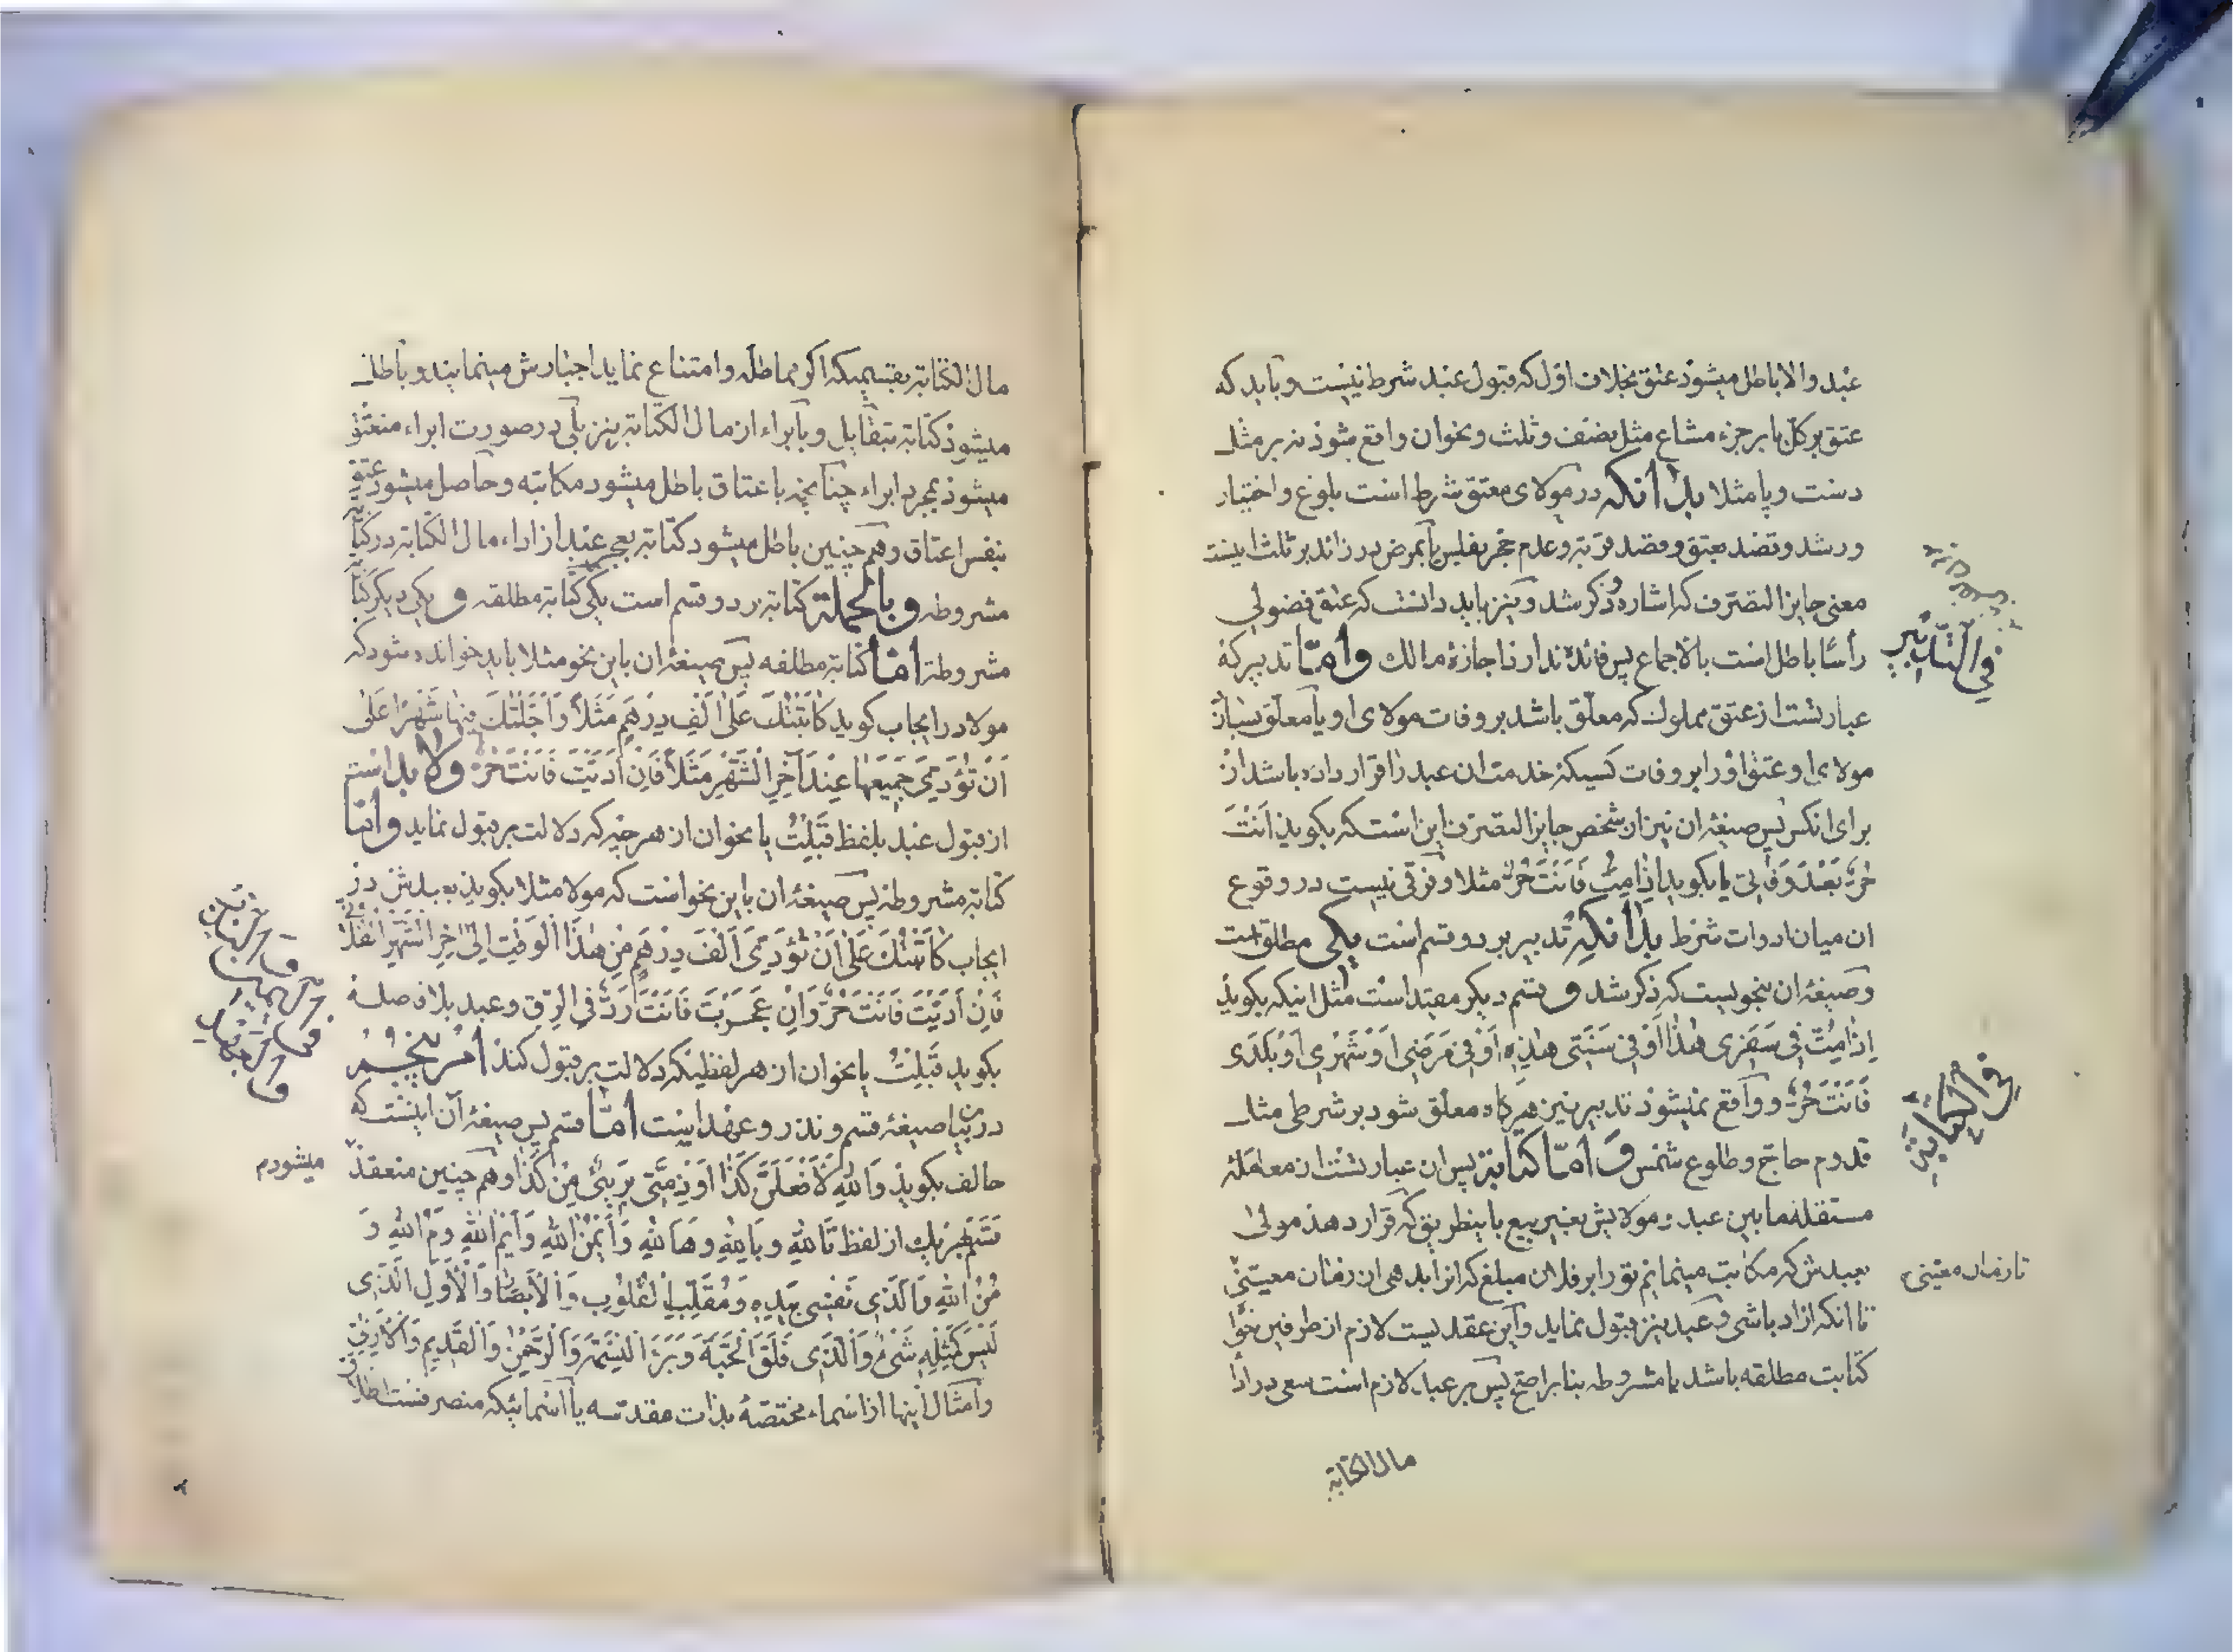 عبد والا باطل میشود عتق بخلاف اول که قبول عبد شرط نیست و باید که
عتق بر کل یا بر جزء مشاع مثل نصف و ثلث و نحو ان واقع شود نه بر مثل
دست و پا مثلا بدانکه در مولای معتق شرط است بلوغ و اختیار
و رشد و قصد بعتق و قصد قربة و عدم حجر بفلس یا بمرض در زائد بر ثلث اینست
معنی جایز التصرف که اشاره و ذکر شد و نیز باید دانست که عتق فضولی
رأسًا باطل است بالاجماع پس فائدة ندارد اجازهٔ مالک و امّا تدبیر که
فی التدبیر
عبارتست از عتق مملوک که معلّق باشد بر وفات مولای او یا معلّق بسازد
مولای او عتق او را بر وفات کسیکه خدمت ان عبد را قرار داده باشد از
برای انکس پس صیغهٔ ان نیز از شخص جایز التصرف این است که بگوید اَنْتَ
حُرٌّ بَعْدَ وَفٰاتی یا بگوید اِذٰا مِتُّ فَاَنْتَ حُرٌّ مثلا و فرقی نیست در وقوع
ان میان ادوات شرط بدانکه تدبیر بر دو قسم است یکی مطلق است
و صیغهٔ ان بنحویست که ذکر شد و قسم دیگر مقید است مثل اینکه بگوید
اِذٰا مِتُّ فی سَفَری هٰذٰا اَوْ فی سَنَتی هٰذِهِ اَوْ فی مَرَضی اَوْ شَهْری اَوْ بَلَدی
فَاَنْتَ حُرٌّ و واقع نمیشود تدبیر نیز هرگاه معلق شود بر شرطی مثل
قدوم حاجّ و طلوع شمس وَ امّا کتابة پس ان عبارتست از معاملهٔ
فی الکتابة
مستقله ما بین عبد و مولایش بغیر بیع باینطریق که قرار دهد مولی
بعبدش که مکاتبت مینمایم تو را بر فلان مبلغ که انرا بدهی ان زمان معیّنی
تا زمان معیّنی
تا انکه ازاد باشی و عبد نیز قبول نماید و این عقدیست لازم از طرفین خواه
کتابت مطلقه باشد یا مشروطه بنا بر اصحّ پس بر عبد لازم است سعی در ادا
مال الکتابة
مال الکتابة بقسمیکه اگر مماطله و امتناع نماید اجبارش مینمایند و باطل
میشود کتابة بتقایل و بابراء از مال الکتابة نیز بلی در صورت ابراء منعتق
میشود بمجرد ابراء چنانچه باعتاق باطل میشود مکاتبه و حاصل میشود عتق
بنفس اعتاق و همچنین باطل میشود کتابة بعجز عبد از اداء مال الکتابة در کتابة
مشروطه و بالجملة کتابة بر دو قسم است یکی کتابة مطلقه و یکی دیگر کتابة
مشروطة امّا کتابة مطلقه پس صیغهٔ ان باین نحو مثلا باید خوانده شود که
مولا در ایجاب گوید کٰاتَبْتُکَ عَلیٰ اَلْفِ دِرْهَمٍ مَثَلاً وَ اَجَّلْتُکَ فیهٰا شَهْرًا عَلیٰ
اَنْ تُؤَدّیَ جَمیعَهٰا عِنْدَ آخِرِ الشَّهْرِ مَثَلاً فَاِنْ اَدَّیْتَ فَاَنْتَ حُرٌّ و لا بد است
از قبول عبد بلفظ قَبِلْتُ یا نحو ان از هر چیز که دلالت بر قبول نماید و امّا
کتابة مشروطه پس صیغهٔ ان باین نحو است که مولا مثلا بگوید بعبدش در
ایجاب کٰاتَبْتُکَ عَلیٰ اَنْ تُؤَدّیَ اَلْفَ دِرْهَمٍ مِنْ هٰذَا الْوَقْتِ اِلیٰ آخِرِ الشَّهْرِ
فَاِنْ اَدَّیْتَ فَاَنْتَ حُرٌّ وَ اِنْ عَجَزْتَ فَاَنْتَ رَدٌّ فِی الرِّقِّ و عبد بلا فاصله
بگوید قَبِلْتُ یا نحو ان از هر لفظیکه دلالت بر قبول کند امر پنجم
در بیان صیغهٔ قسم و نذر و عهد اینست امّا قسم پس صیغهٔ آن اینست که
حالف بگوید وَ اللّٰهِ لَاَفْعَلَنَّ کَذٰا اَوْ ذِمَّتی بَریئٌ مِنْ کَذٰا و همچنین منعقد
میشود
قسم بهر یک از لفظ تَاللّٰهِ و بِاللّٰهِ وَ هَا اللّٰهِ وَ اَیْمُنُ اللّٰهِ وَ اَیْمُ اللّٰهِ وَ مُ اللّٰهِ وَ
مُنُ اللّٰهِ وَ الَّذی نَفْسی بِیَدِهِ وَ مُقَلِّبِ الْقُلُوبِ وَ الْاَبْصٰارِ وَ الْاَوَّلِ الَّذی
لَیْسَ کَمِثْلِهِ شَیْءٌ وَ الَّذی فَلَقَ الْحَبَّةَ وَ بَرَءَ النَّسَمَةَ وَ الرَّحْمٰنِ وَ الْقَدیمِ وَ الْاَزَلِیِّ
و امثال اینها از اسماء مختصّهٔ بذات مقدسه یا اسمائیکه منصرفست اطلاق